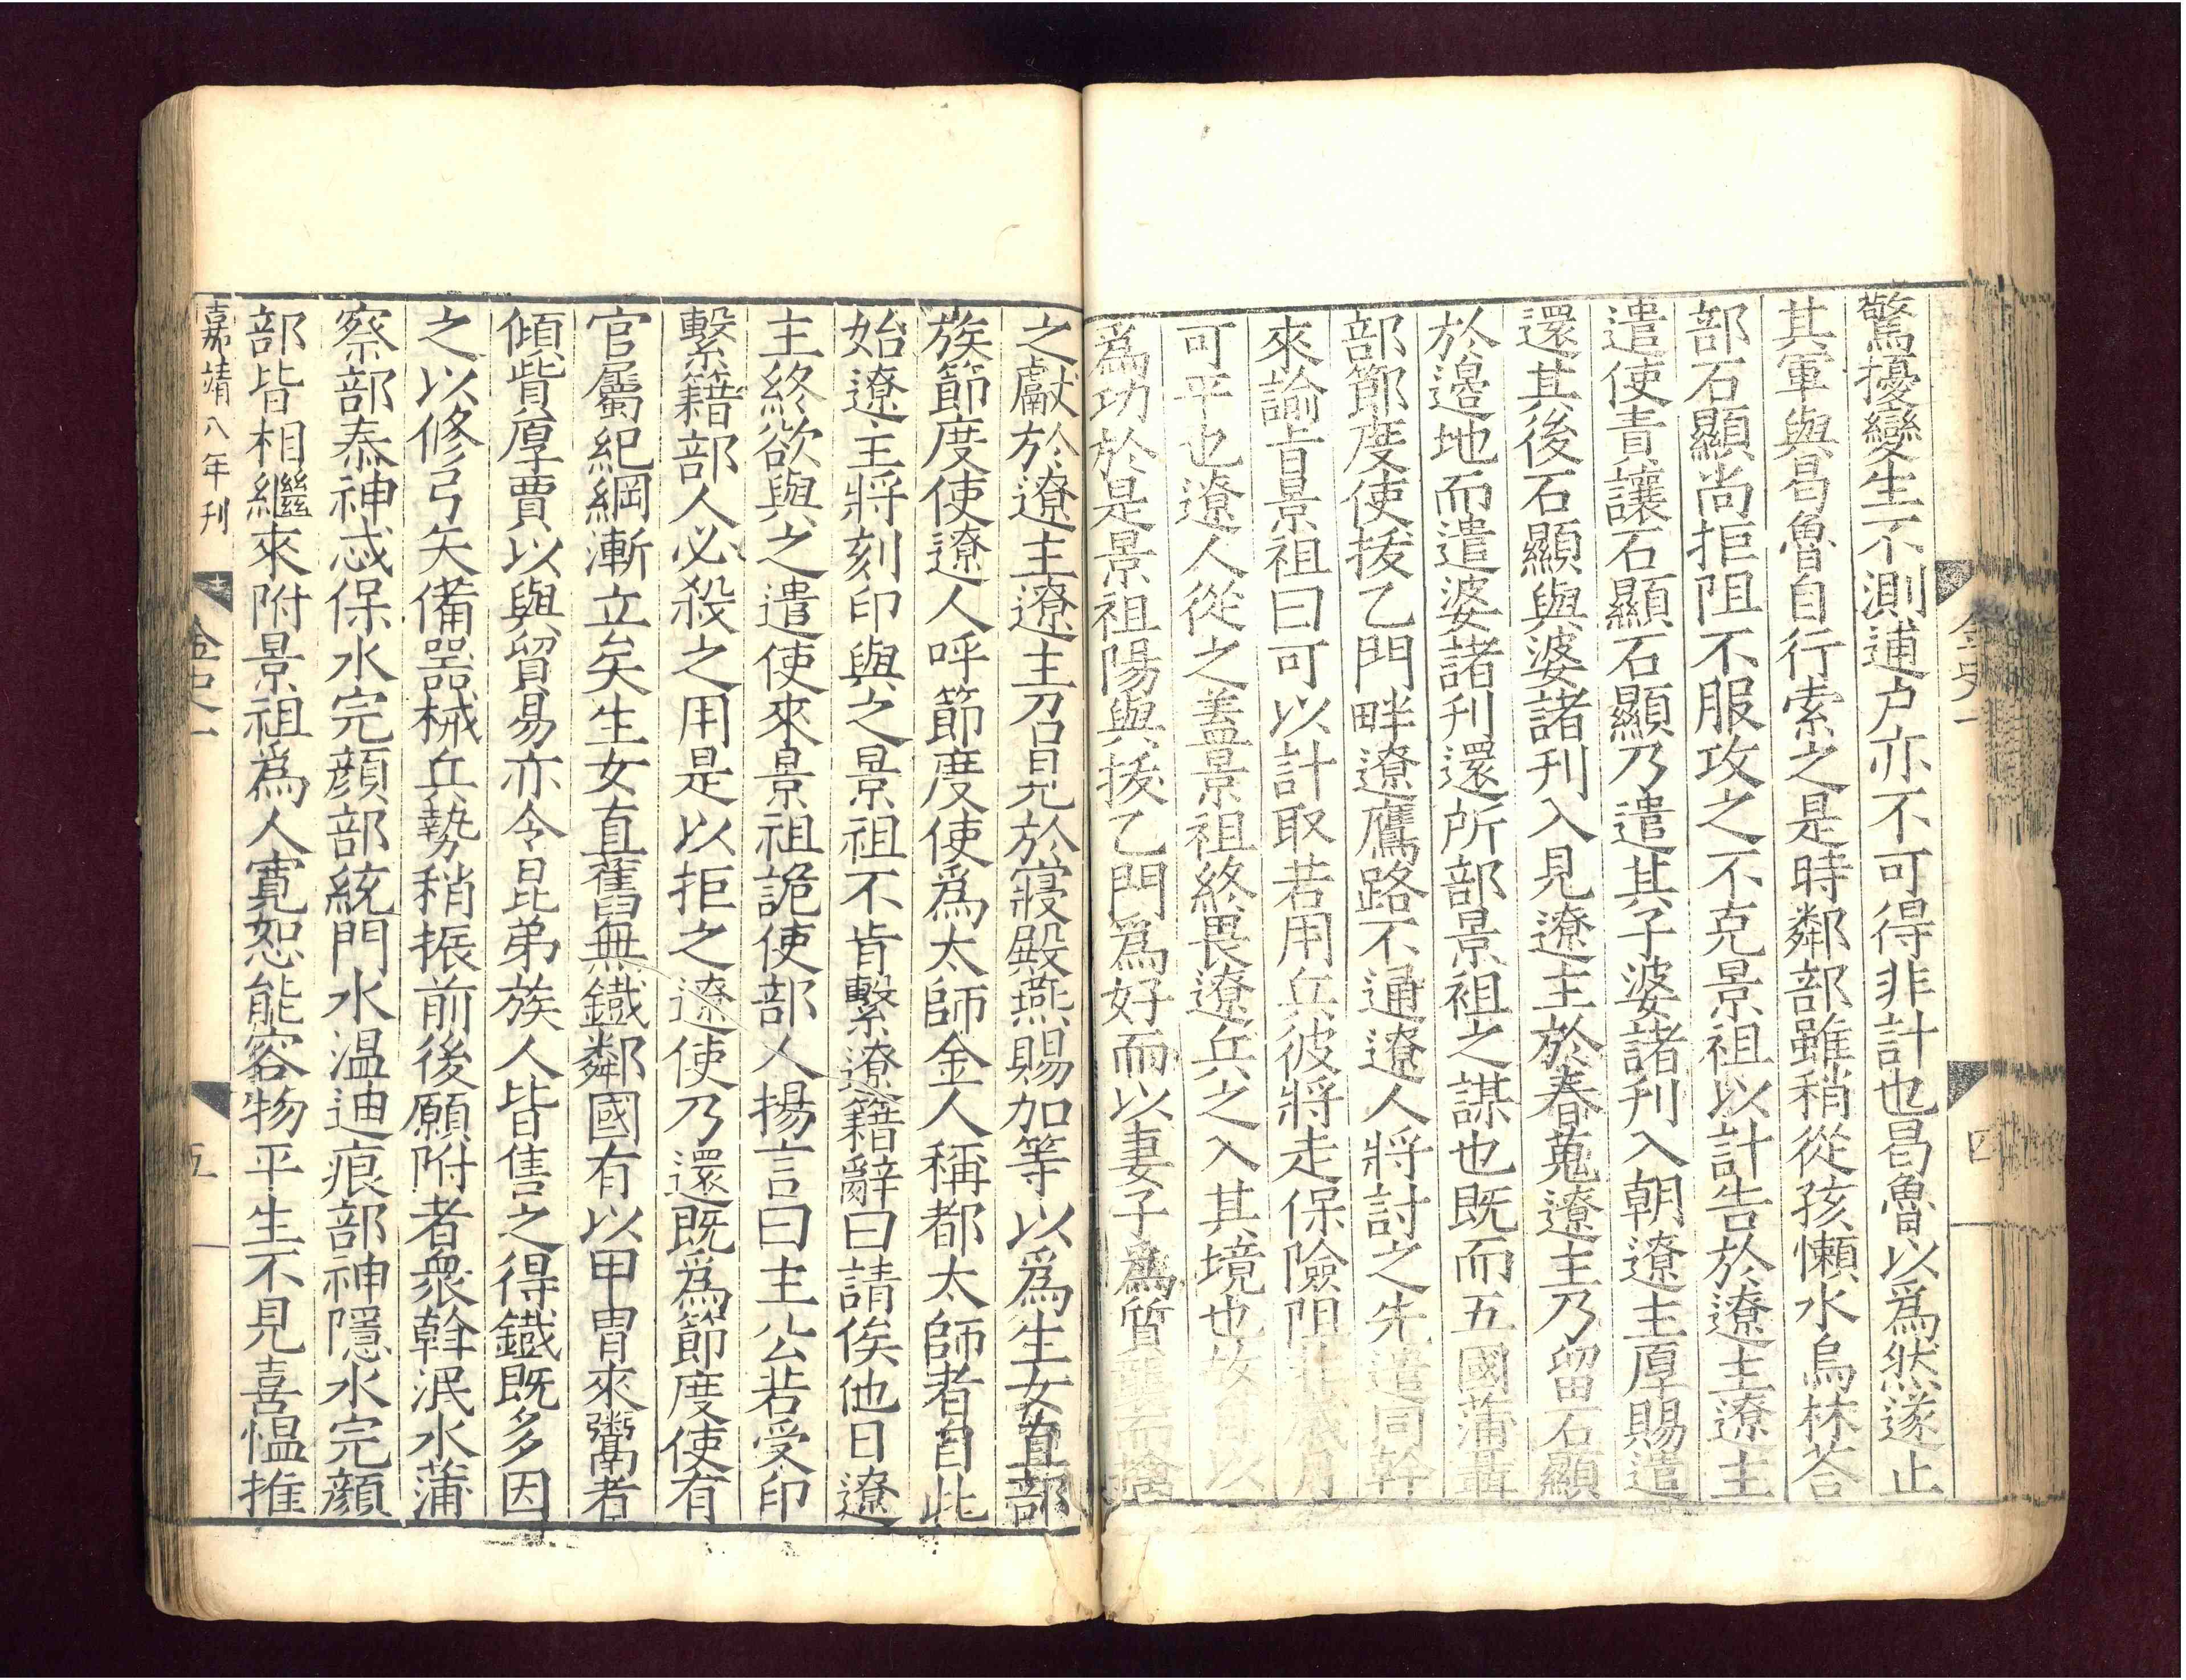 驚擾變生不測逋户亦不可得非計也曷魯以爲然遂止
其軍與曷魯自行索之是時鄰部雖稍從孩懶水烏林荅
部石顯尚拒阻不服攻之不克景祖以計告於遼主遼主
遣使責讓石顯石顯乃遣其子婆諸刊入朝遼主厚賜遣
還其後石顯與婆諸刊入見遼主於春蒐遼主乃留石顯
於邊地而遣婆諸刊還所部景祖之謀也既而五國蒲聶
部節度使拔乙門畔遼鷹路不通遼人將討之先遣同幹
來諭旨景祖曰可以計取若用兵彼將走保險阻非歲月
可平也遼人從之蓋景祖終畏遼兵之入其境也故自以
爲功於是景祖陽與拔乙門爲好而以妻子爲質襲而擒
金史一
四
之獻於遼主遼主召見於寢殿燕賜加等以爲生女直部
族節度使遼人呼節度使爲太師金人稱都太師者自此
始遼主將刻印與之景祖不肯繫遼籍辭曰請俟他日遼
主終欲與之遣使來景祖詭使部人揚言曰主公若受印
繫籍部人必殺之用是以拒之遼使乃還既爲節度使有
官屬紀綱漸立矣生女直舊無鐵鄰國有以甲冑來鬻者
傾貲厚賈以與貿易亦令昆弟族人皆售之得鐵既多因
之以修弓矢備器械兵勢稍振前後願附者衆斡泯水蒲
察部泰神忒保水完顏部統門水温迪痕部神隱水完顏
部皆相繼來附景祖爲人寬恕能容物平生不見喜愠推
嘉靖八年刊
金史一
五